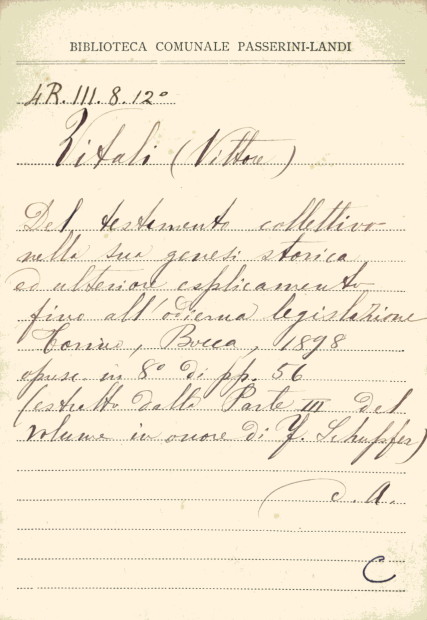 BIBLIOTECA COMUNALE PASSERINI-LANDI
4R.III.8.12°
Vitali (Vittore)
Del testamento collettivo
nella sua genesi storica
ed ulteriore esplicamento
fino all'odierna legislazione
Torino, Bocca, 1898
opusc. in 8° di pp. 56
(estratto dalla Parte III del
volume in onore di F. Schupfer)
d. A.
C